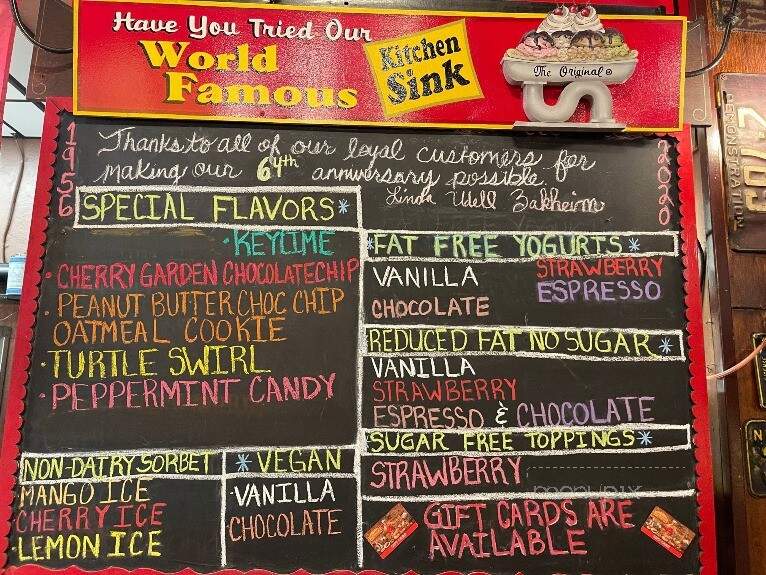 Have You Tried Our
World
Famous
Kitchen
Sink
The Original
1956
2020
Thanks to all of our loyal customers for
making our 64th anniversary possible
Linda Well Zakheim
SPECIAL FLAVORS*
· KEYLIME
· CHERRY GARDEN CHOCOLATECHIP
· PEANUT BUTTER CHOC CHIP
OATMEAL COOKIE
· TURTLE SWIRL
· PEPPERMINT CANDY
NON-DAIRY SORBET
MANGO ICE
CHERRY ICE
· LEMON ICE
* VEGAN
· VANILLA
CHOCOLATE
*FAT FREE YOGURTS*
VANILLA STRAWBERRY
CHOCOLATE ESPRESSO
REDUCED FAT NO SUGAR*
VANILLA
STRAWBERRY
ESPRESSO & CHOCOLATE
SUGAR FREE TOPPINGS*
STRAWBERRY
GIFT CARDS ARE
AVAILABLE
DEMONSTRATION